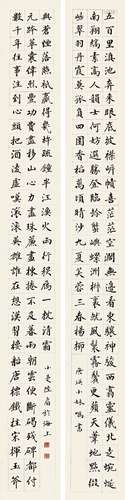 五百里滇池奔來眼底披襟岸幘喜茫茫空闊無邊看東驤神駿西翥靈儀北走蜿蜒
南翔縞素高人韻士何妨選勝登臨趁蟹嶼螺洲梳裹就風鬟霧鬢更蘋天葦地點綴
些翠羽丹霞莫孤負四圍香稻萬頃晴沙九夏芙蓉三春楊柳
數千年往事注到心頭把酒凌虛嘆滾滾英雄誰在想漢習樓船唐標鐵柱宋揮玉斧
元跨革囊偉烈豐功費盡移山心力儘珠簾畫棟卷不及暮雨朝雲便斷碣殘碑都付
與蒼煙落照只贏得幾杵疏鐘半江漁火兩行秋雁一枕清霜
小曼陸眉於海上